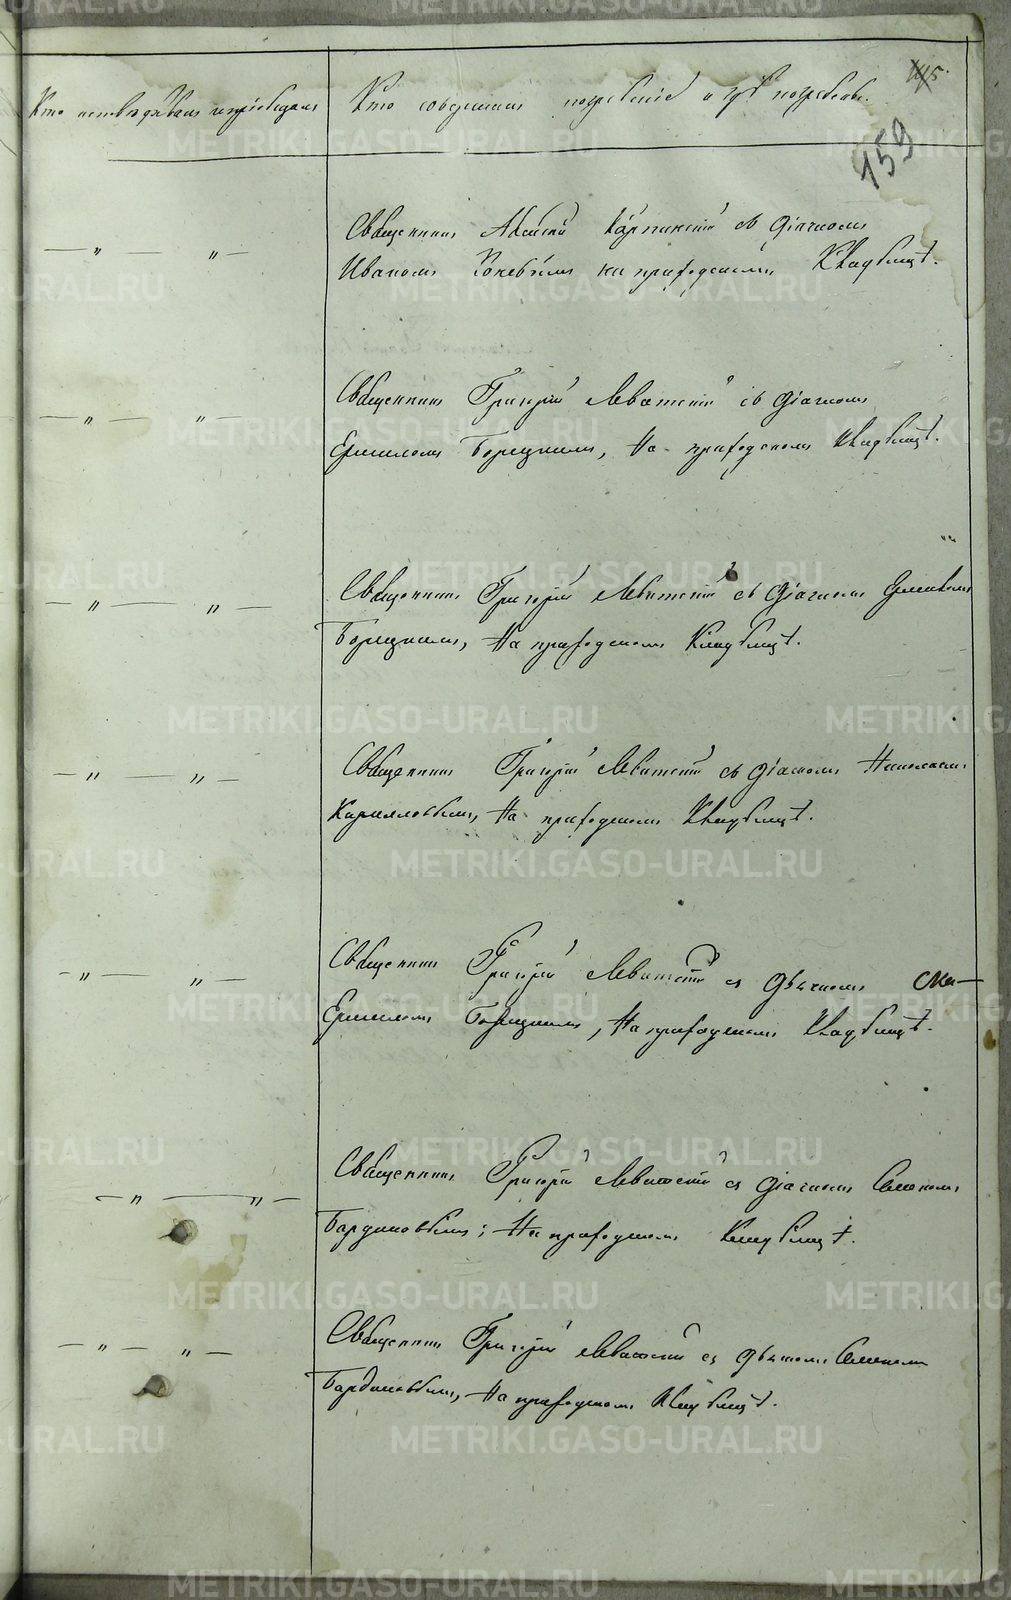 115.
159
Кто исповѣдывалъ и пріобщалъ
Кто совершалъ погребеніе и гдѣ погребены.
— „ — „ —
Священникъ Алексѣй Карпинскій съ Діячкомъ
Иваномъ на приходскомъ Кладбищѣ.
— „ — „
Священникъ Григорій Левитскій съ Діячкомъ
Ермиломъ Борецкимъ, На приходскомъ Кладбищѣ.
— „ — „ —
Священникъ Григорій Левитскій съ Діячкомъ Ермиломъ
Борецкимъ, На приходскомъ Кладбищѣ.
— „ — „ —
Священникъ Григорій Левитскій съ Діакономъ Николаемъ
Кирилловымъ, На приходскомъ Кладбищѣ.
— „ — „ —
Священникъ Григорій Левитскій съ Дьячкомъ
Ермиломъ Борецкимъ, На приходскомъ Кладбищѣ.
— „ — „ —
Священникъ Григорій Левитскій съ Діячкомъ Семеномъ
Бардаковымъ; На приходскомъ Кладбищѣ.
— „ — „ —
Священникъ Григорій Левитскій съ Дьячкомъ Семеномъ
Бардаковымъ, На приходскомъ Кладбищѣ.
METRIKI.GASO-URAL.RU